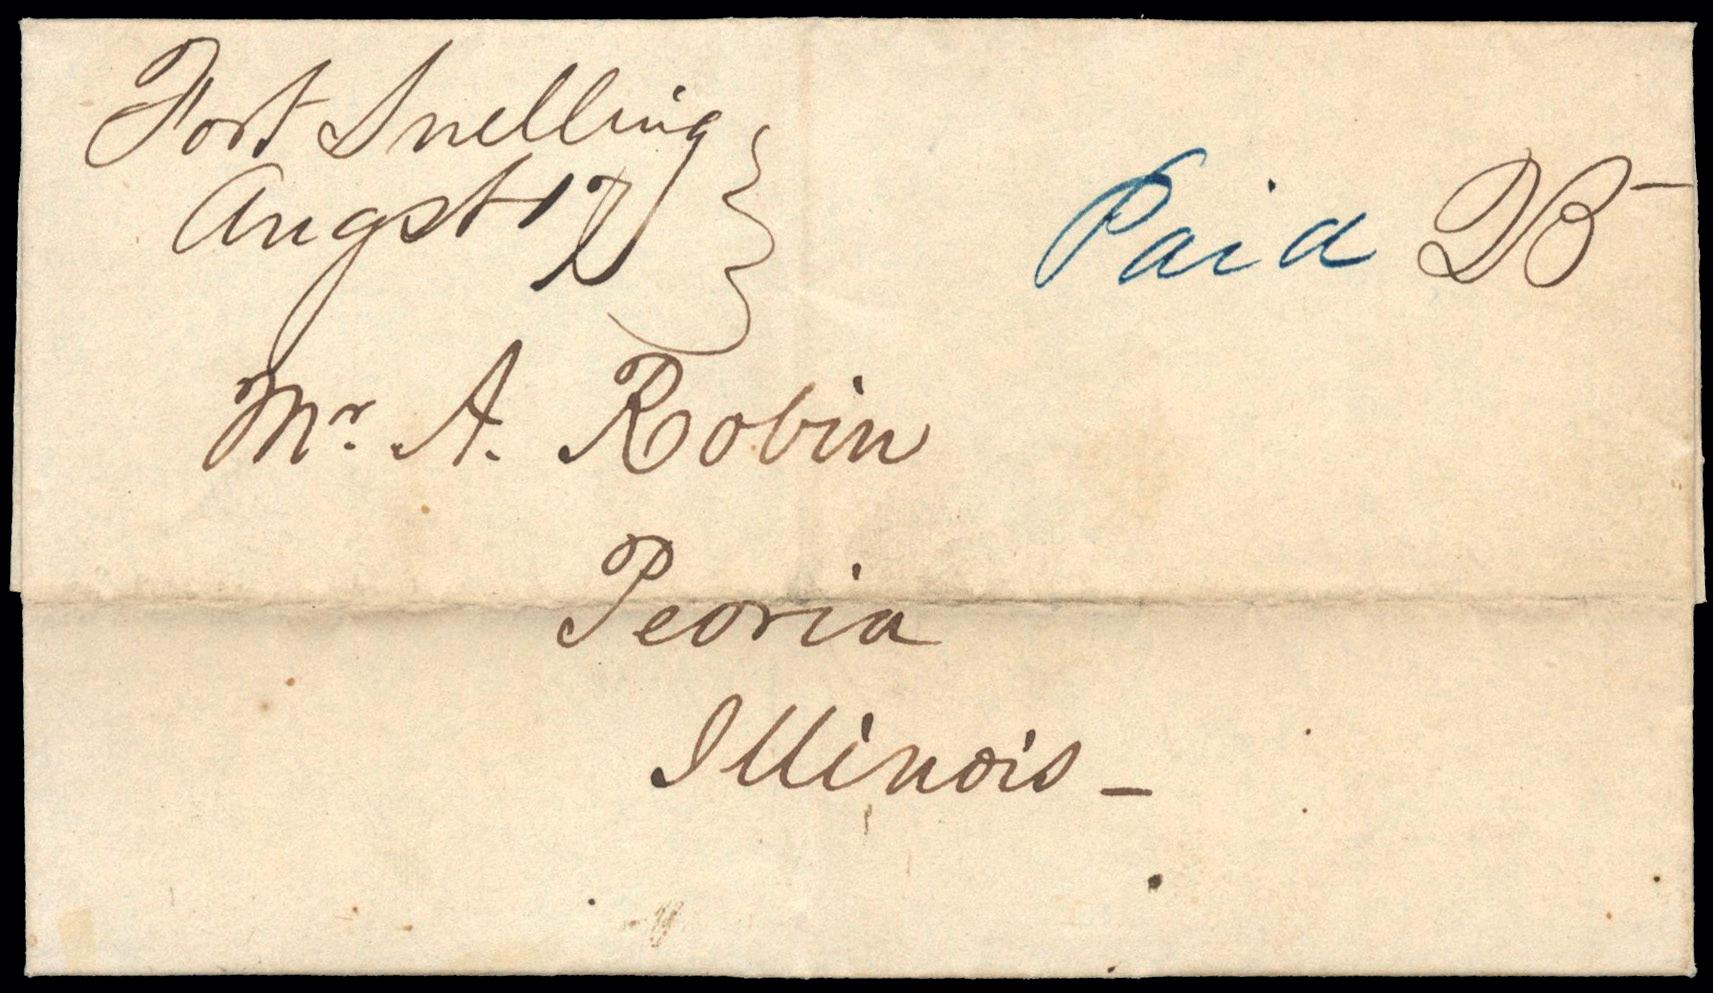 Fort Snelling
Augst 17
Paid DB
Mr. A. Robin
Peoria
Illinois